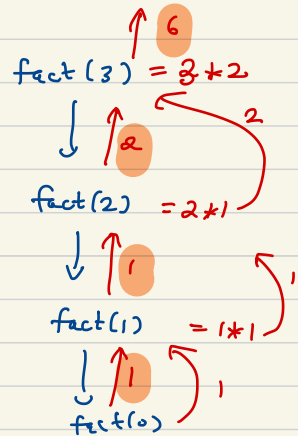 6
fact(3) = 3*2
2
2
fact(2) = 2*1
1
1
fact(1) = 1*1
1
1
fact(0)